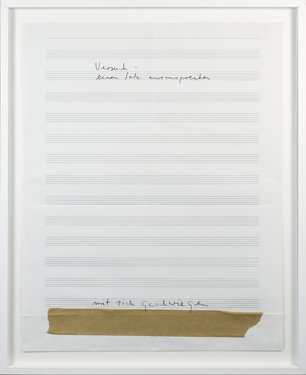 Versuch –
einen Satz auszusprechen
mit sich geschwiegen